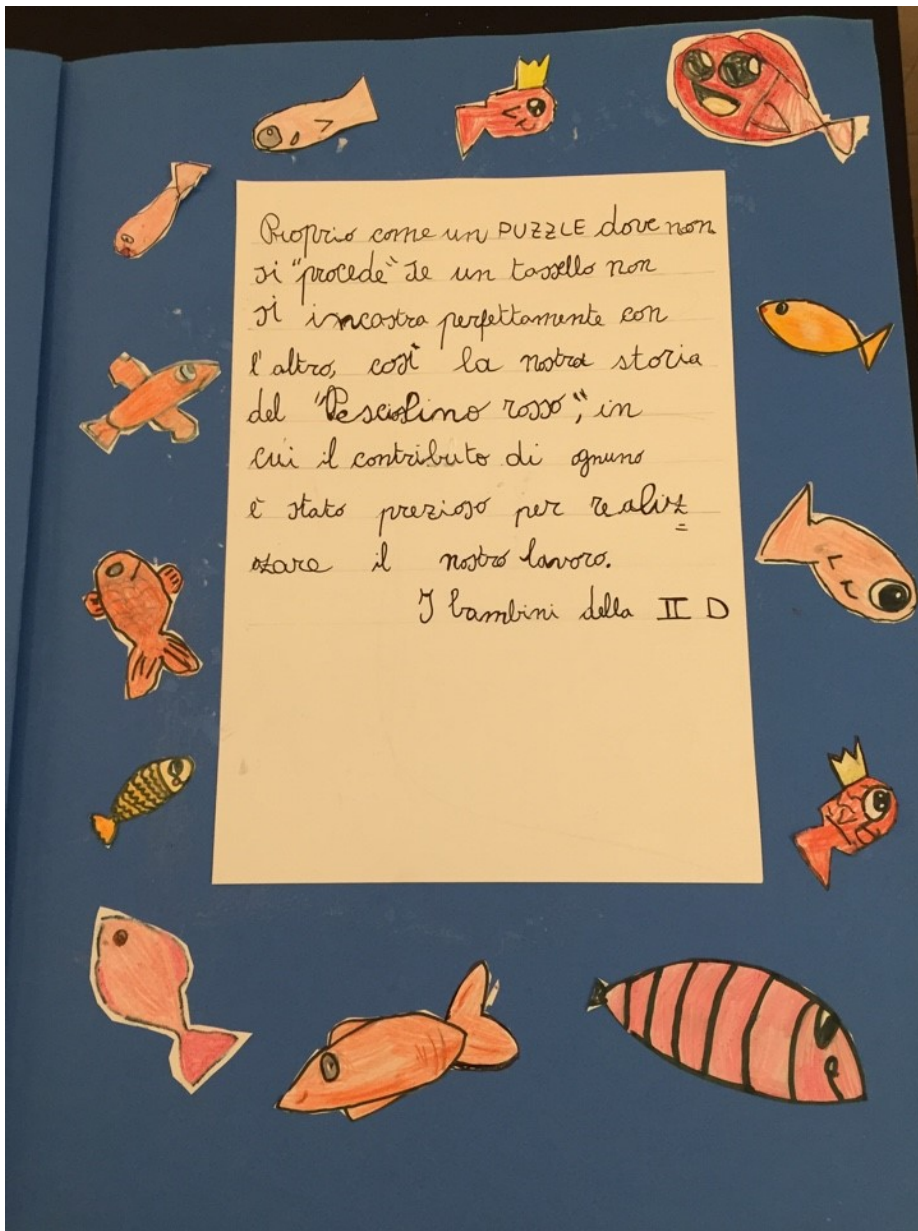 Proprio come un PUZZLE dove non
si "procede" se un tassello non
si incastra perfettamente con
l'altro, così la nostra storia
del "Pesciolino rosso", in
cui il contributo di ognuno
è stato prezioso per realiz
zare il nostro lavoro.
I bambini della II D